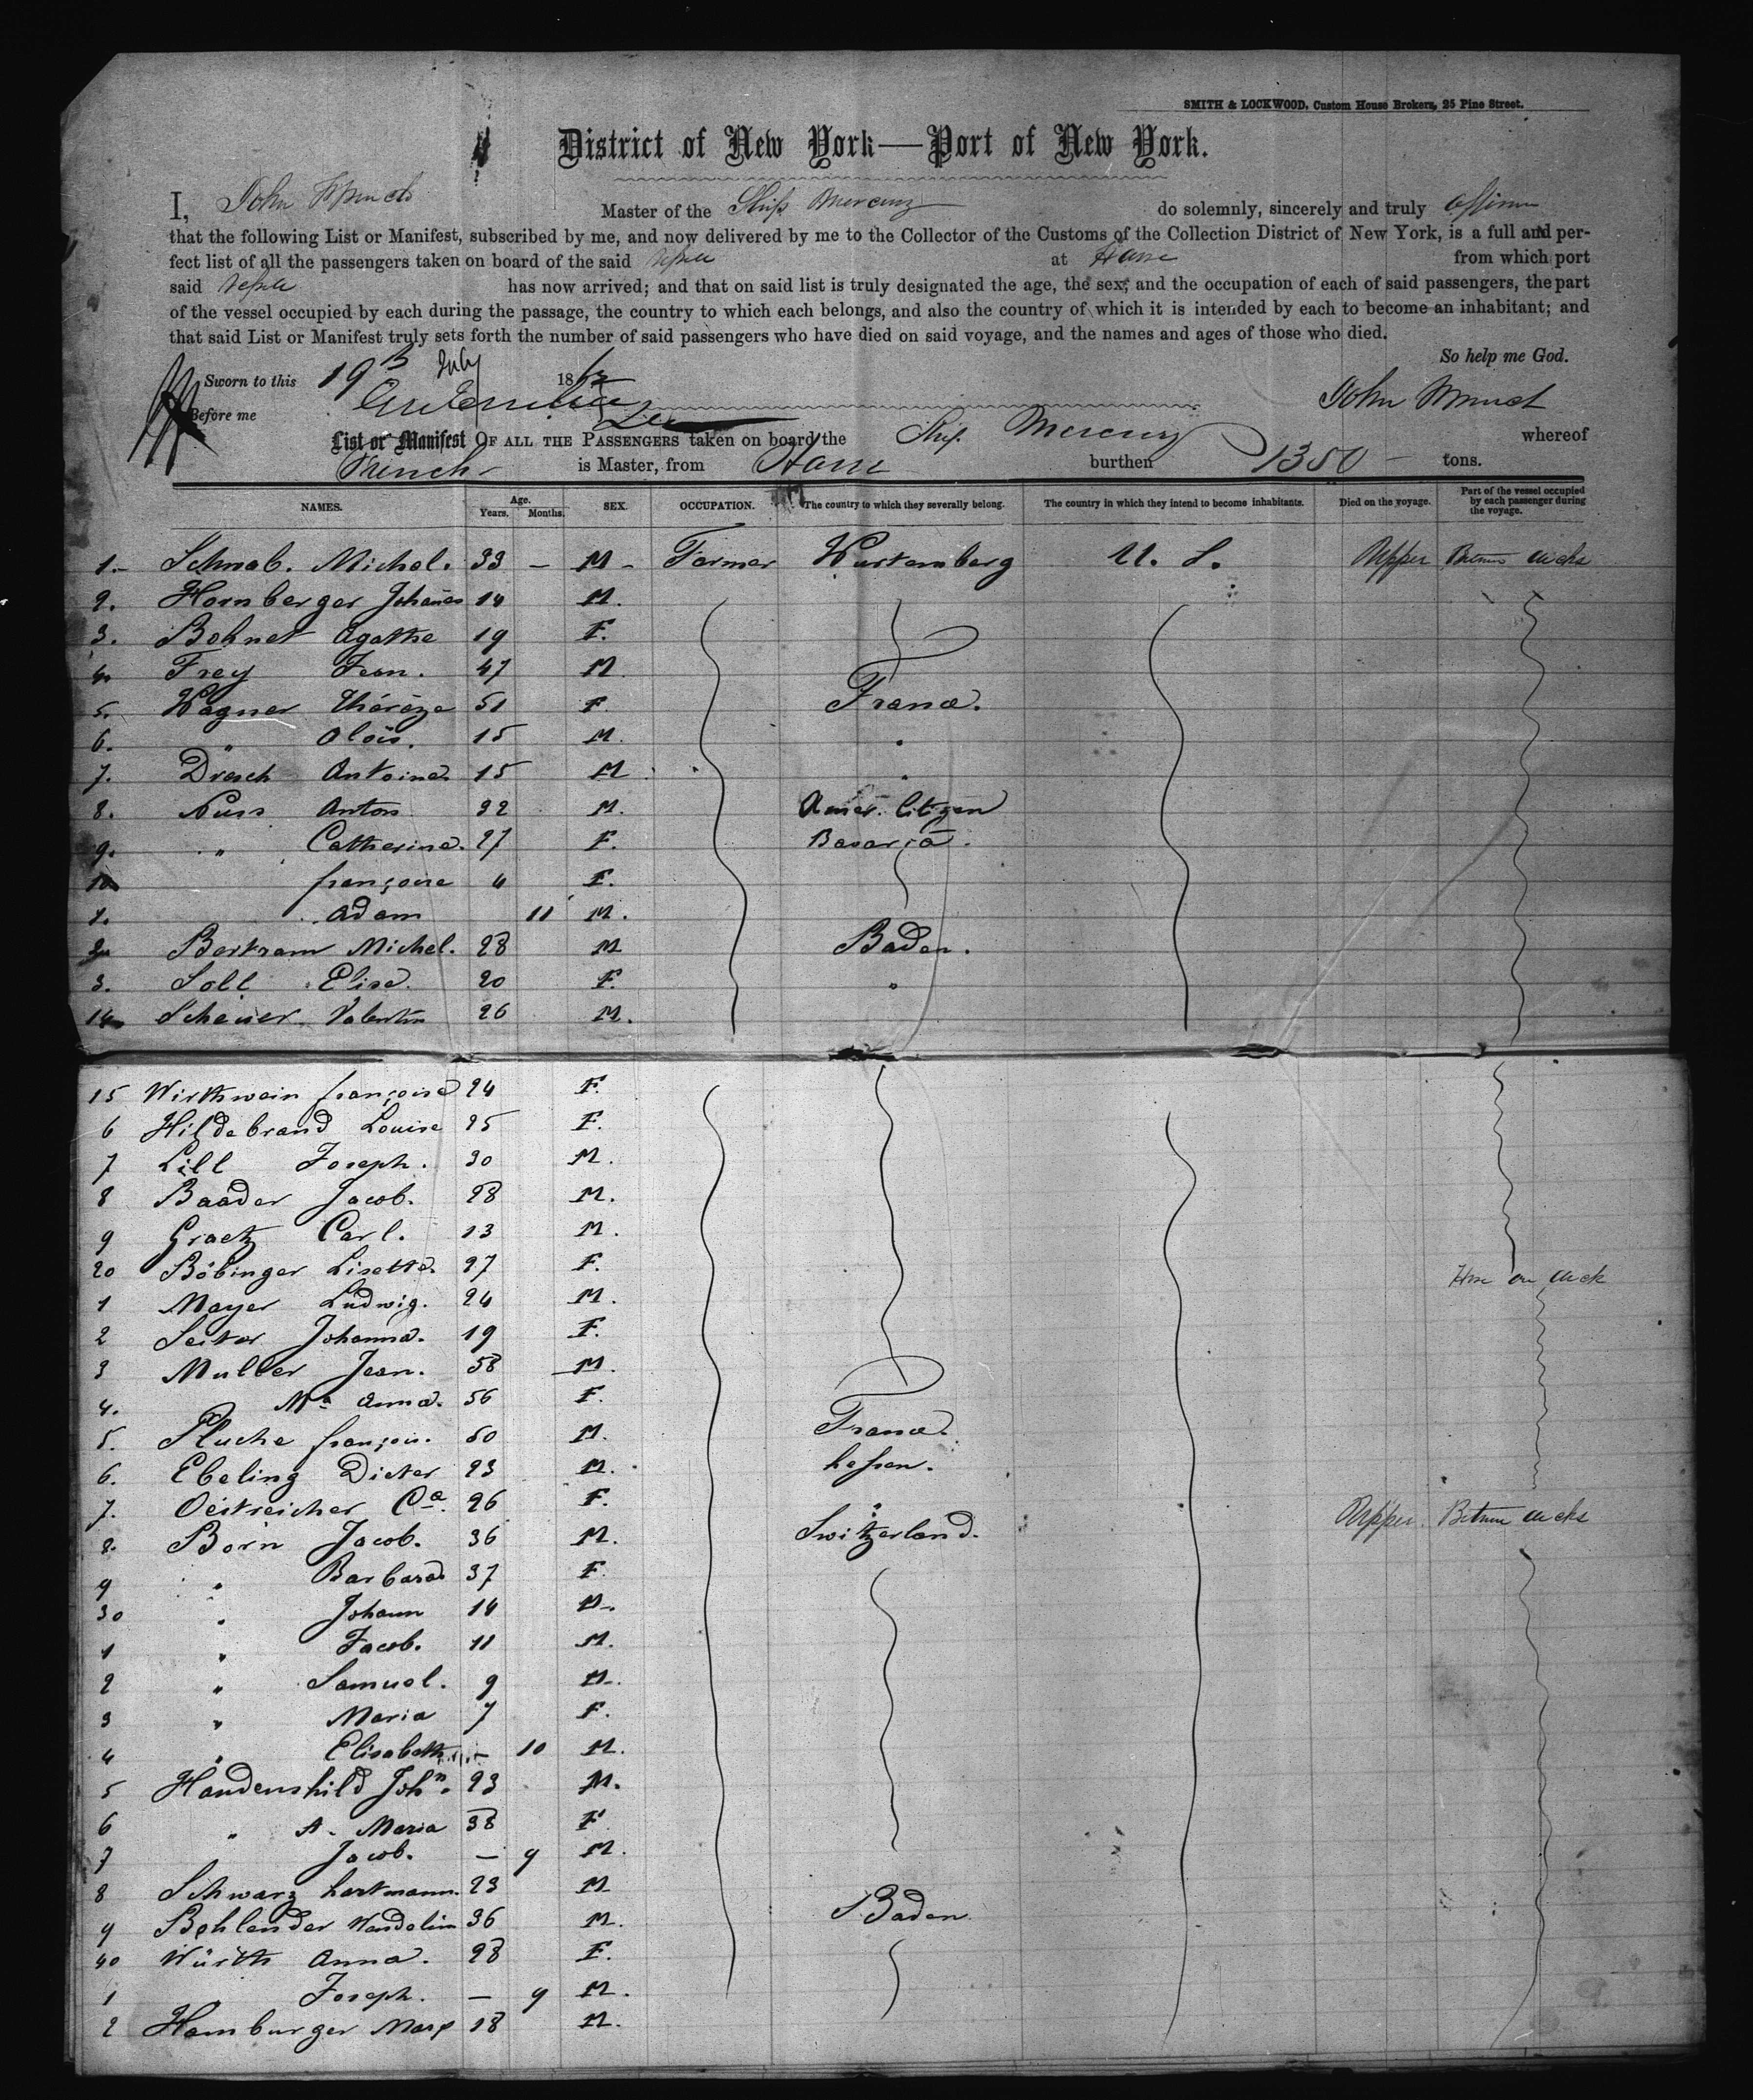 SMITH & LOCKWOOD, Custom House Brokers, 25 Pine Street.
District of New York—Port of New York.
I, John Master of the Ship Mercury do solemnly, sincerely and truly affirm
that the following List or Manifest, subscribed by me, and now delivered by me to the Collector of the Customs of the Collection District of New York, is a full and per-
fect list of all the passengers taken on board of the said at Havre from which port
said has now arrived; and that on said list is truly designated the age, the sex, and the occupation of each of said passengers, the part
of the vessel occupied by each during the passage, the country to which each belongs, and also the country of which it is intended by each to become an inhabitant; and
that said List or Manifest truly sets forth the number of said passengers who have died on said voyage, and the names and ages of those who died.
So help me God.
Sworn to this 19th July 18
Before me John
List or Manifest OF ALL THE PASSENGERS taken on board the Ship Mercury whereof
is Master, from Havre burthen 1350 tons.
NAMES. Age. Years. Months. SEX. OCCUPATION. The country to which they severally belong. The country in which they intend to become inhabitants. Died on the voyage. Part of the vessel occupied by each passenger during the voyage.
1. Schnab. Michel. 33 - M - Farmer Wurtemberg U. S. Upper Between decks
2. Hornberger Johanes 14 M.
3. Bohnet Agathe 19 F.
4. Frey Jean. 47 M.
5. Wagner Thérèze 51 F. France.
6. " Alois. 15 M. "
7. Dresch Antoine. 15 M "
8. Nuss Anton 32 M. Amer. Citizen
9. " Catherine. 27 F. Bavaria.
10 françoise 4 F.
1. Adam 11 M.
2. Bertram Michel. 28 M Baden.
3. Soll Elise. 20 F. "
14 Scheuer Valentin 26 M.
15 Wirthwein françoise 24 F.
6 Hildebrand Louise 25 F.
7 Lill Joseph. 30 M.
8 Baader Jacob. 28 M.
9 Graetz Carl. 13 M.
20 Böbinger Lisette. 27 F. House on deck
1 Mayer Ludwig. 24 M.
2 Seiter Johanna. 19 F.
3 Muller Jean. 58 M.
4. Ma Anna. 56 F.
5. Pluche françois. 50 M. France.
6. Ebeling Dieter 23 M. hessen.
7. Oestreicher Ca. 26 F. " Upper Between decks
8. Born Jacob. 36 M. Switzerland.
9 " Barbara 37 F.
30 " Johann 14 M.
1 " Jacob. 11 M.
2 " Samuel. 9 M.
3 " Maria 7 F.
4 " Elisabeth - 10 M.
5 Handenshild John. 23 M.
6 " A. Maria 38 F
7 Jacob. - 9 M.
8 Schwarz hartmann. 23 M
9 Bohlender Wendelin 36 M. Baden
40 Würth Anna. 28 F.
1 Joseph. - 9 M.
2 Hamburger Marx 18 M.